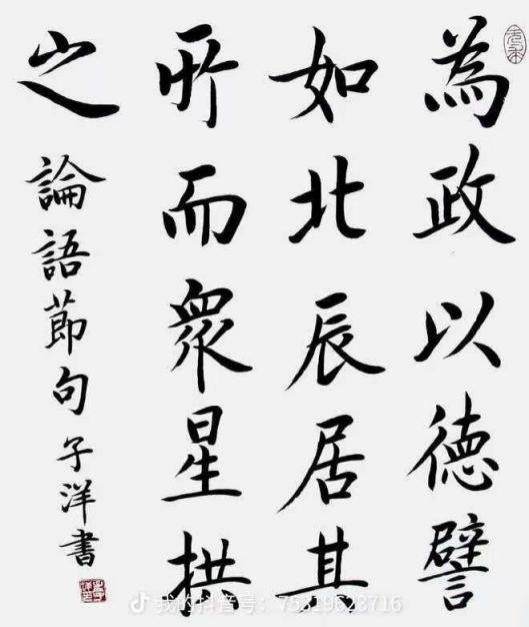 為政以德譬
如北辰居其
所而衆星拱
之
論語節句 子洋書
我的抖音号：75319623716